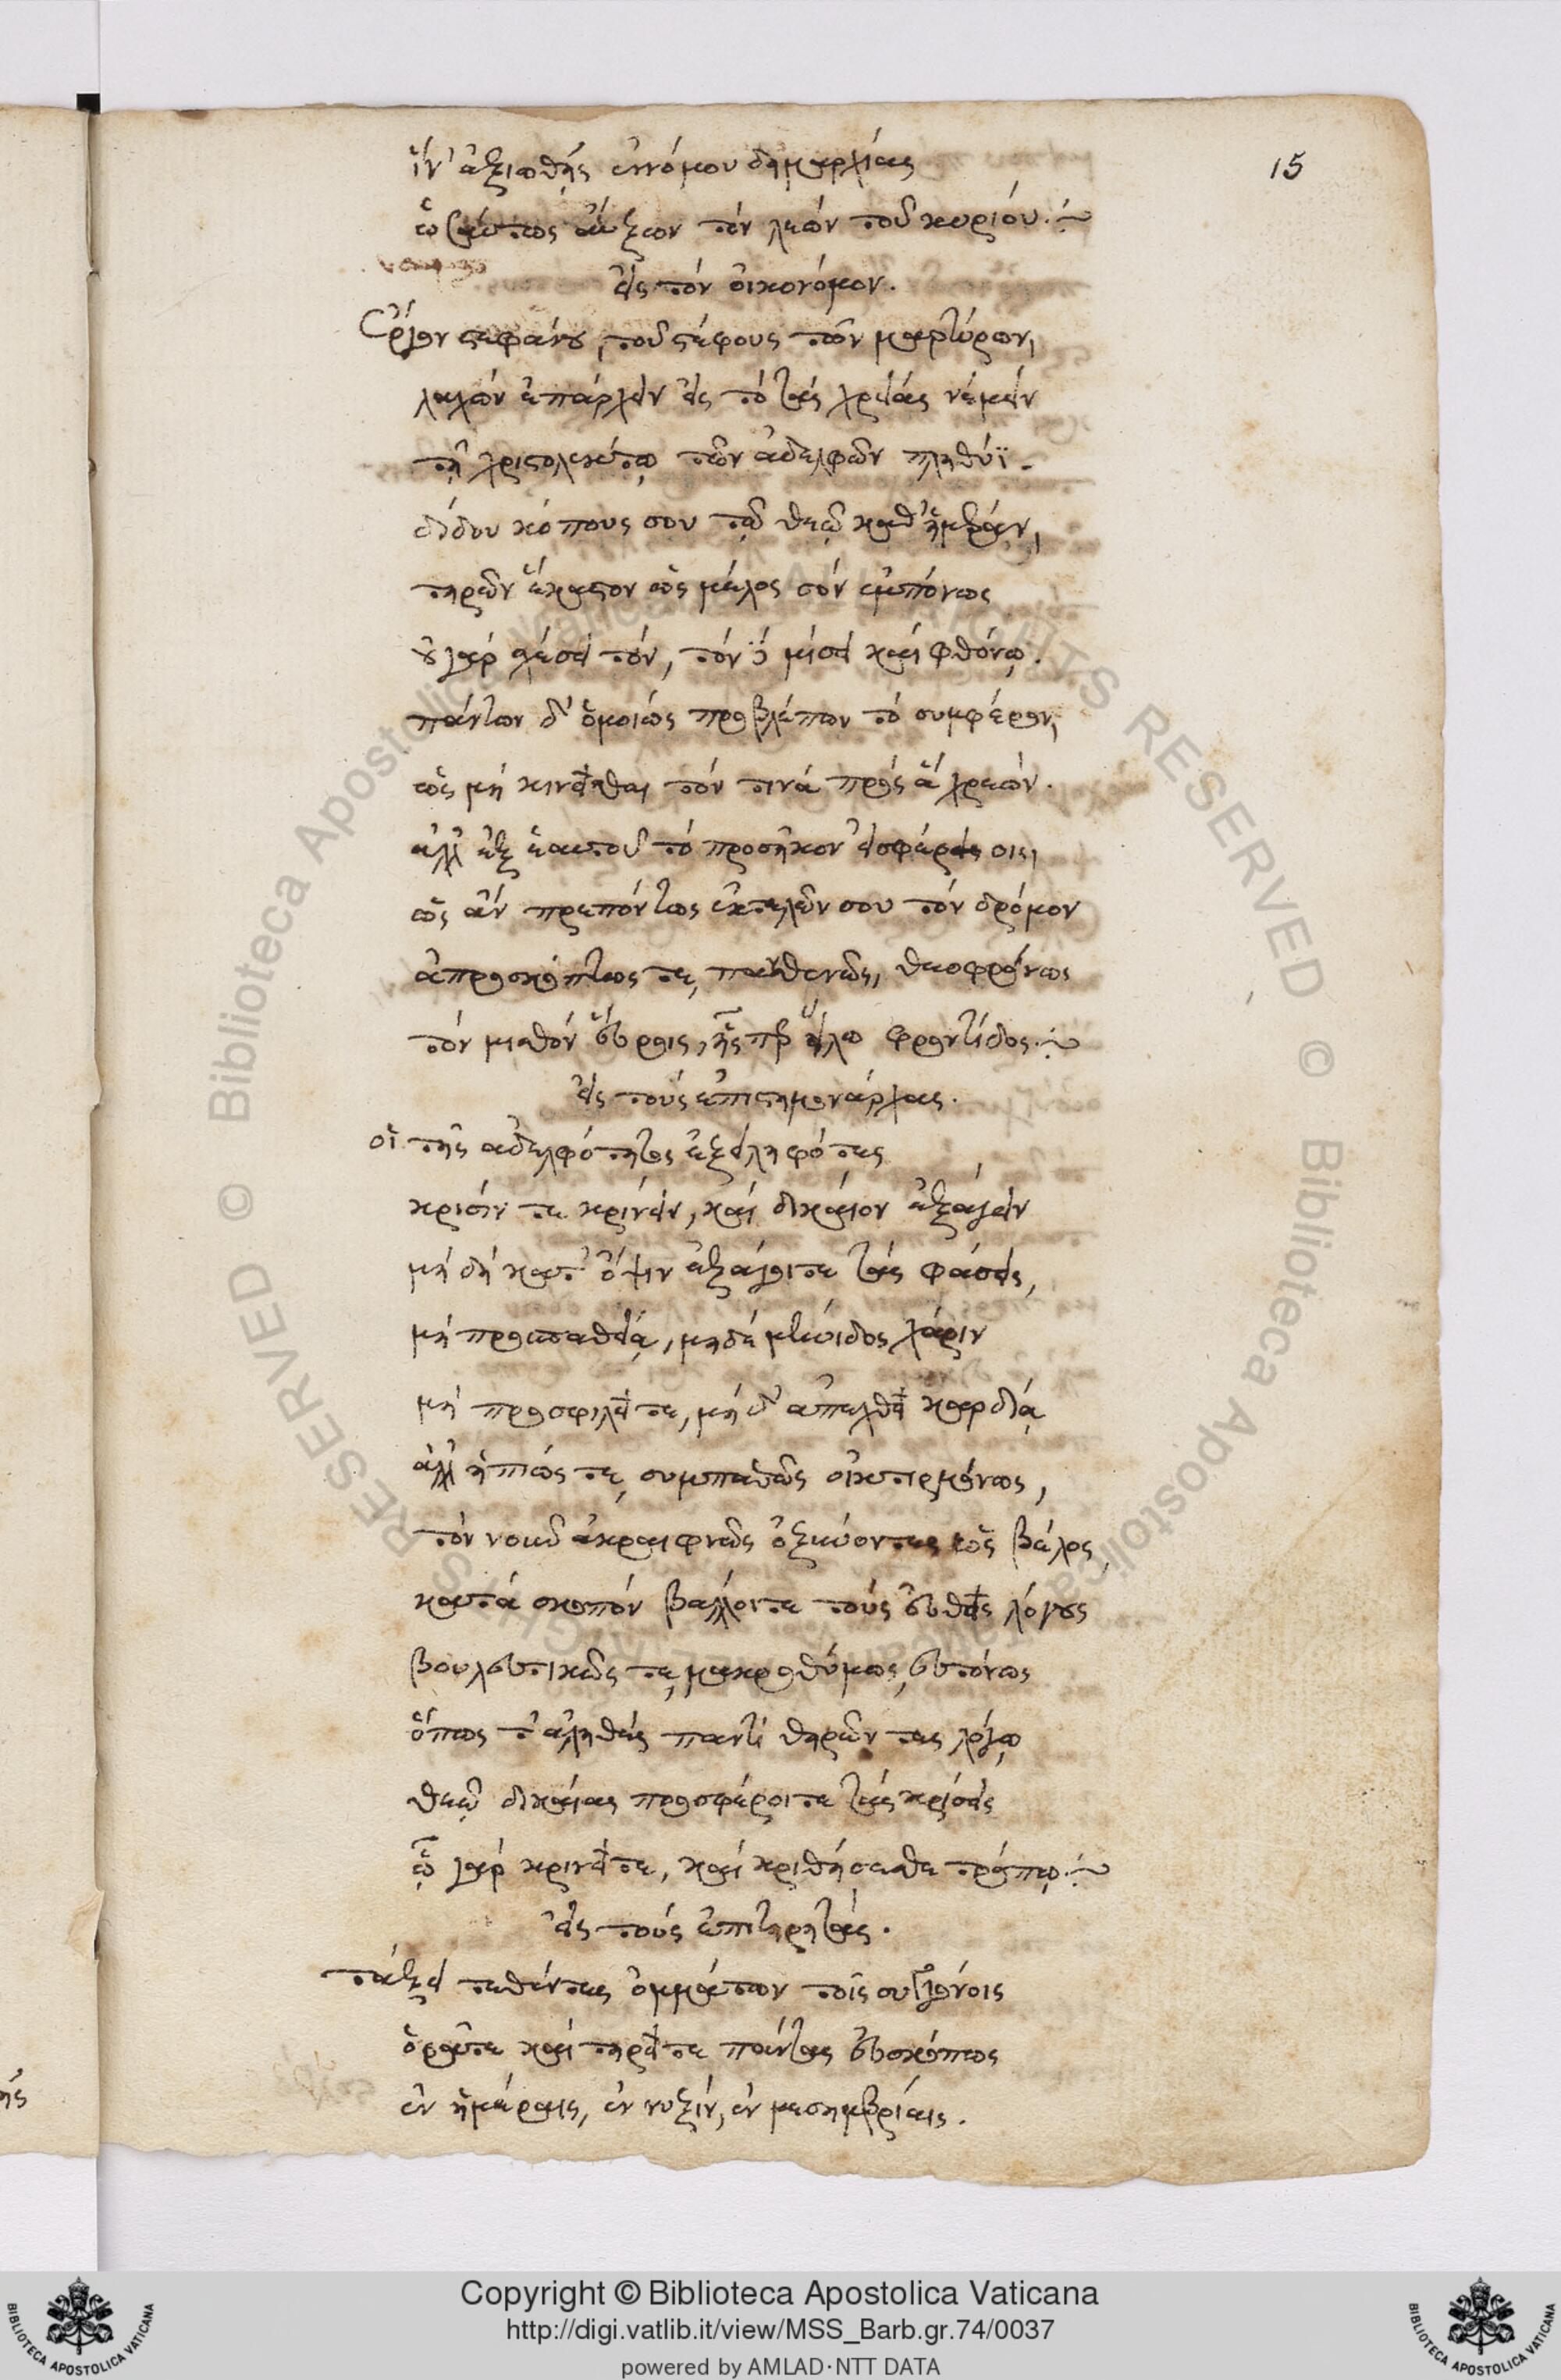 15
ἵν' ἀξιωθῇς ἐννόμου δημαρχίας
ὡσαύτως αὔξων τὸν λεὼν τοῦ κυρίου.
εἰς τὸν οἰκονόμον.
ἔργον στεφάνου, τοῦ στέφους τῶν μαρτύρων,
λαχὼν ἐπάρχειν εἰς τὸ τὰς χρείας νέμειν
τῇ χριστολέκτῳ τῶν ἀδελφῶν πληθύϊ.
δίδου κόπους σου τῷ θεῷ καθ' ἡμέραν,
τηρῶν ἕκαστον ὡς μέλος σὸν ἐμπόνως
οὐ γὰρ τὸν, τὸν μίσει καὶ φθόνῳ.
πάντων δ' ὁμοίως προβλέπων τὸ συμφέρον,
ὡς μὴ κινεῖσθαι τόν τινα πρὸς ἃ χρεών.
ἀλλ' ἐξ ἑαυτοῦ τὸ προσῆκον εἰσφέροις,
ὡς ἂν πρεπόντως ἐκτελῶν σου τὸν δρόμον
ἀπροσκόπτως τε, πανσθενῶς, θεοφρόνως
τὸν μισθὸν εὕροις, ἧσπερ φροντίδος.
εἰς τοὺς ἐπιστημονάρχας.
οἱ τῆς ἀδελφότητος ἐξειληφότες
κρίσιν τε κρίνειν, καὶ δίκαιον ἐξάγειν
μὴ δὴ κατ' ὄψιν ἐξάγοιτε τὰς φάσεις,
μὴ προσπαθείᾳ, μηδὲ χάριν
μὴ προσφιλεῖ τε, μὴ δ' ἀπεχθεῖ καρδίᾳ
ἀλλ' ἠπίως τε, συμπαθῶς οἰκτιρμόνως,
τὸν νοῦν ἀκραιφνῶς ὀξύνοντες ὡς βέλος
κατὰ σκοπὸν βάλλοιτε τοὺς εὐθεῖς λόγους
βουλευτικῶς τε, μακροθύμως, εὐτόνως
ὅπως τ' ἀληθὲς παντὶ θηρῶντες λόγῳ
θεῷ δικαίας προσφέροιτε τὰς κρίσεις
ᾧ γὰρ κρινεῖτε, καὶ κριθήσεσθε τρόπῳ.
εἰς τοὺς ἐπιτηρητάς.
τάξει τεθέντες ὀμμάτων τοῖς συγγόνοις
ὁρᾶτε καὶ τηρεῖτε πάντας εὐσκόπως
ἐν ἡμέραις, ἐν νυξίν, ἐν μεσημβρίαις.
Copyright © Biblioteca Apostolica Vaticana
http://digi.vatlib.it/view/MSS_Barb.gr.74/0037
powered by AMLAD·NTT DATA